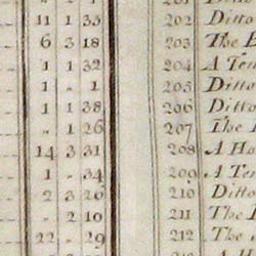 11 1 33 202 Ditto
6 3 18 203 The
1 1 32 204 A Ten
1 - 1 205 Ditto
1 1 38 206 Ditto
- 1 26 207 The
14 3 31 208 A Ho
1 - 34 209 A Ten
2 3 26 210 Ditto
- 2 10 211 The
22 - 29 212 The